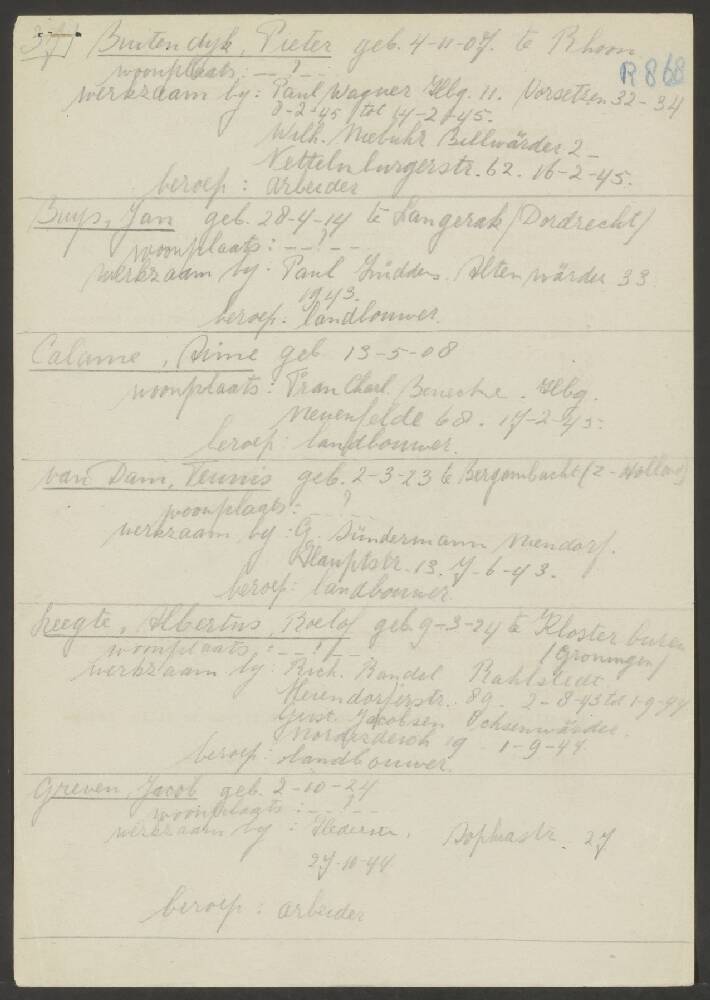 37) Buitendyk, Pieter geb. 4-11-07. te Rhoon
R 868
woonplaats: --?--
werkzaam by: Paul Wagner Hbg. 11. Vorsetzen 32-34
8-2-45 tot 14-2-45.
Wilh. Niebuhr Billwärder 2-
Nettelnburgerstr. 62. 16-2-45.
beroep: arbeider
Buys, Jan geb. 28-4-14 te Langerak (Dordrecht)
woonplaats: --?--
werkzaam by: Paul Lüdders. Altenwärder 33
1943.
beroep: landbouwer.
Calame, Aime geb 13-5-08
woonplaats: Frau Charl. Benecke. Hbg.
Neuenfelde 68. 17-2-45.
beroep: landbouwer.
van Dam, Teunis geb. 2-3-23 te Bergambacht (Z-Holland)
woonplaats: ?
werkzaam by: G. Sündermann Niendorf.
Hauptstr. 13. 7-6-43.
beroep: landbouwer
Leegte, Albertus, Roelof geb 9-3-24 te Kloosterburen
woonplaats: --?-- (Groningen)
werkzaam by: Rich. Randel Rahlstedt
8g. 2-8-43 tot 1-9-44
Gust. Jacobsen Ochsenwärder.
Norderdeich 19 1-9-44.
beroep: landbouwer.
Greven, Jacob geb. 2-10-24
woonplaats: --?--
werkzaam by: Sophiastr. 27
27-10-44
beroep: arbeider